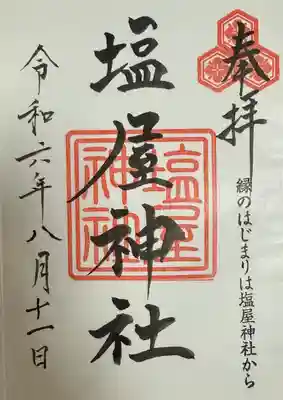 奉拝
縁のはじまりは塩屋神社から
塩屋神社
塩屋
神社
令和六年八月十一日